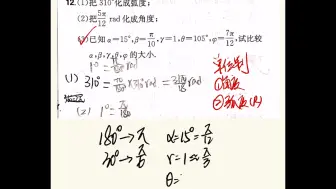 12.(1)把310°化成弧度;
(2)把5π/12 rad化成角度;
(3)已知α=15°,β=π/10,γ=1,θ=105°,φ=7π/12,试比较
α,β,γ,θ,φ的大小.
1°=π/180 rad
(1) 310°=π/180×310 rad=31π/18 rad
(2) 1°=π/180
单位制
①角度
②弧度(R)
180°→π
30°→π/6
α=15°=π/12
r=1≈π/3
θ=